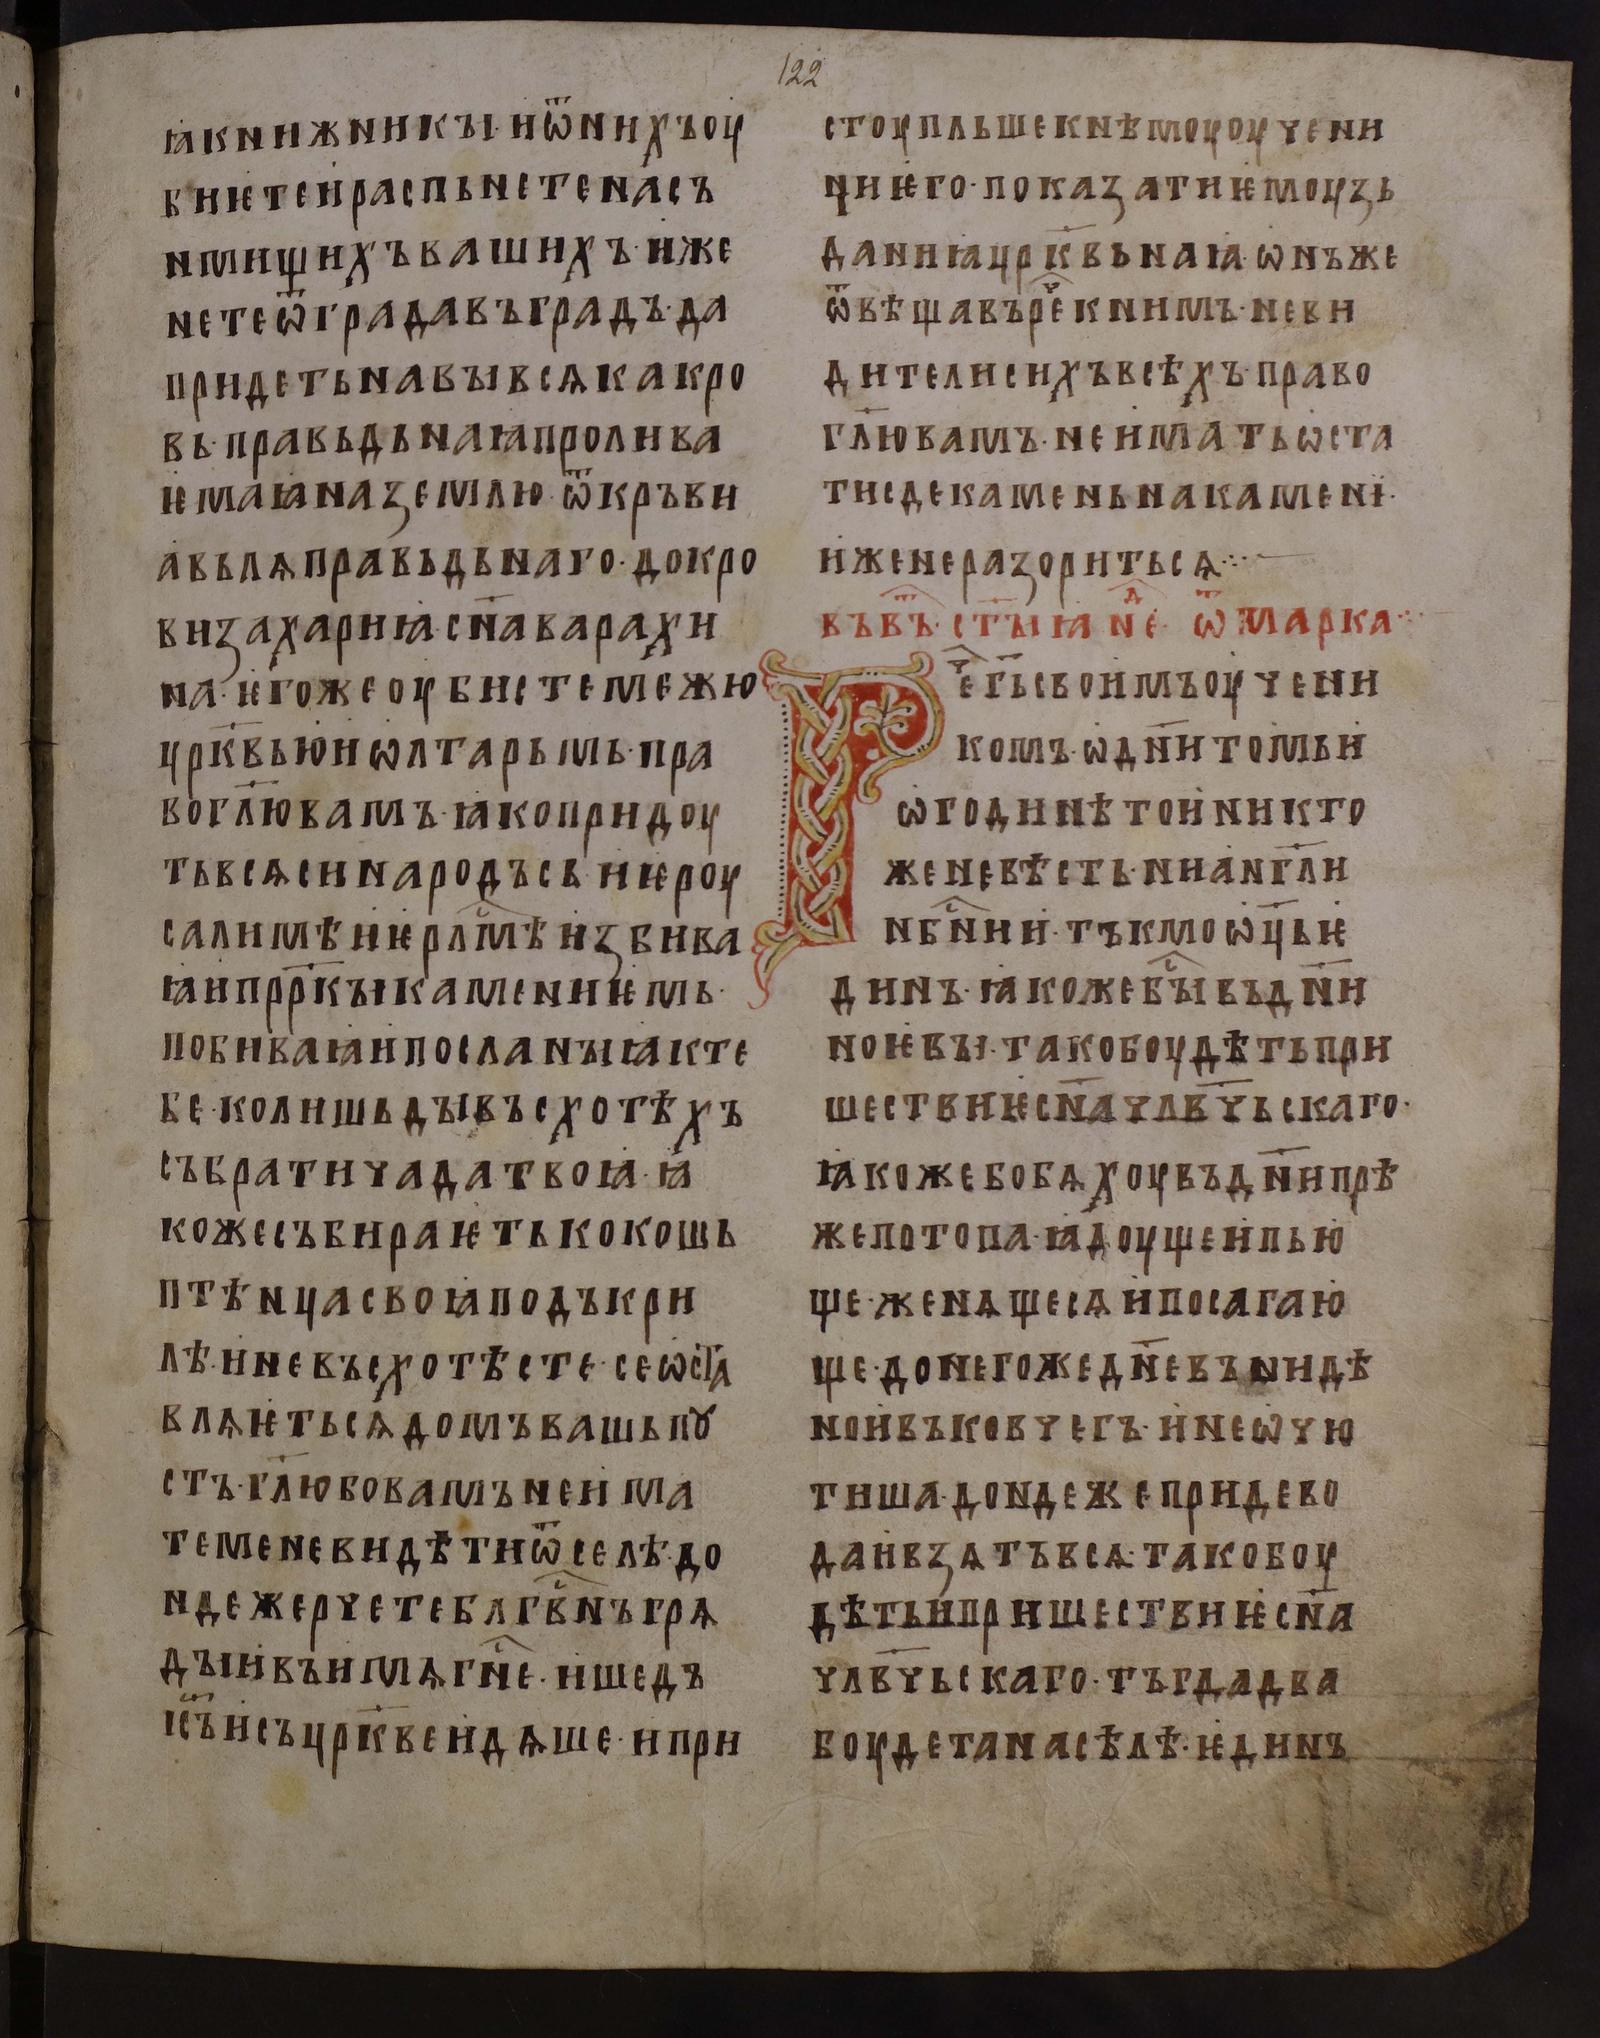 122
ꙗ книжникꙑ· и ѿ нихъ оу
биѥте и распьнете на съ
нмищихъ вашихъ· ижде
нете ѿ града въ градъ· да
придеть на вꙑ всѧка кро
вь· правьдьнаꙗ пролива
ѥмаꙗ на землю· ѿ кръви
авьлѧ правьдьнаго· до кро
ви захариꙗ· сн҃а варахи
на· ѥгоже оубисте межю
црк҃вью и ѡлтарьмь· пра
во гл҃ю вамъ· ꙗко придоу
ть всѧ си на родъ сь· иѥроу
салимѣ иѥрлмⷭ҇ѣ избива
ꙗи прр҃кꙑ каменниѥмь·
побиваꙗи посланꙑꙗ к те
бе· колишьдꙑ въсхотѣхъ
събрати чада твоꙗ· ꙗ
коже събираѥть кокошь
птѣнца своꙗ подъ кри
лѣ· и не въсхотѣсте· се ѡста
влѧѥтьсѧ домъ вашь пꙋ
стъ· гл҃ю бо вамъ не има
те мене видѣти ѿселѣ· до
ндеже рчете блгвⷭ҇нъ грѧ
дꙑи въ имѧ гнⷭ҇е· и шедъ
іс҃ъ и съ црк҃ве идѧше· и при
стоупльше к нѣмоу оучени
ци ѥго· показати ѥмоу зь
даниꙗ црк҃вьнаꙗ· ѡнъ же
ѿвѣщавъ речⷭ҇е к нимъ· не ви
дите ли сихъ всѣхъ· право
гл҃ю вамъ· не имать ѡста
ти сде камень на камени·
иже не разоритьсѧ⁘
въ в҃ъ· ст҃ꙑꙗ нⷣе· ѿ марка⁘
Рече г҃ь своимъ оучени
комъ· ѡ дн҃и томь и
ѡ годинѣ тои никто
же не вѣсть· ни анг҃ли
нб҃нии· тъкмо ѡц҃ь ѥ
динъ· ꙗкоже бꙑⷭ҇ въ дн҃и
ноѥвꙑ· тако боудѣть при
шествиѥ сн҃а члв҃чьскаго·
ꙗкоже бо бѧхоу въ дн҃и прѣ
же потопа· ꙗдоуще и пью
ще· женѧщесѧ и посагаю
ще· до негоже дн҃е вънидѣ
нои въ ковчегъ· и не ѡчю
тиша· дондеже приде во
да и взѧтъ всѧ· тако боу
дѣть и пришествиѥ сн҃а
члв҃чьскаго· тъгда два
боудета на сѣлѣ· ѥдинъ